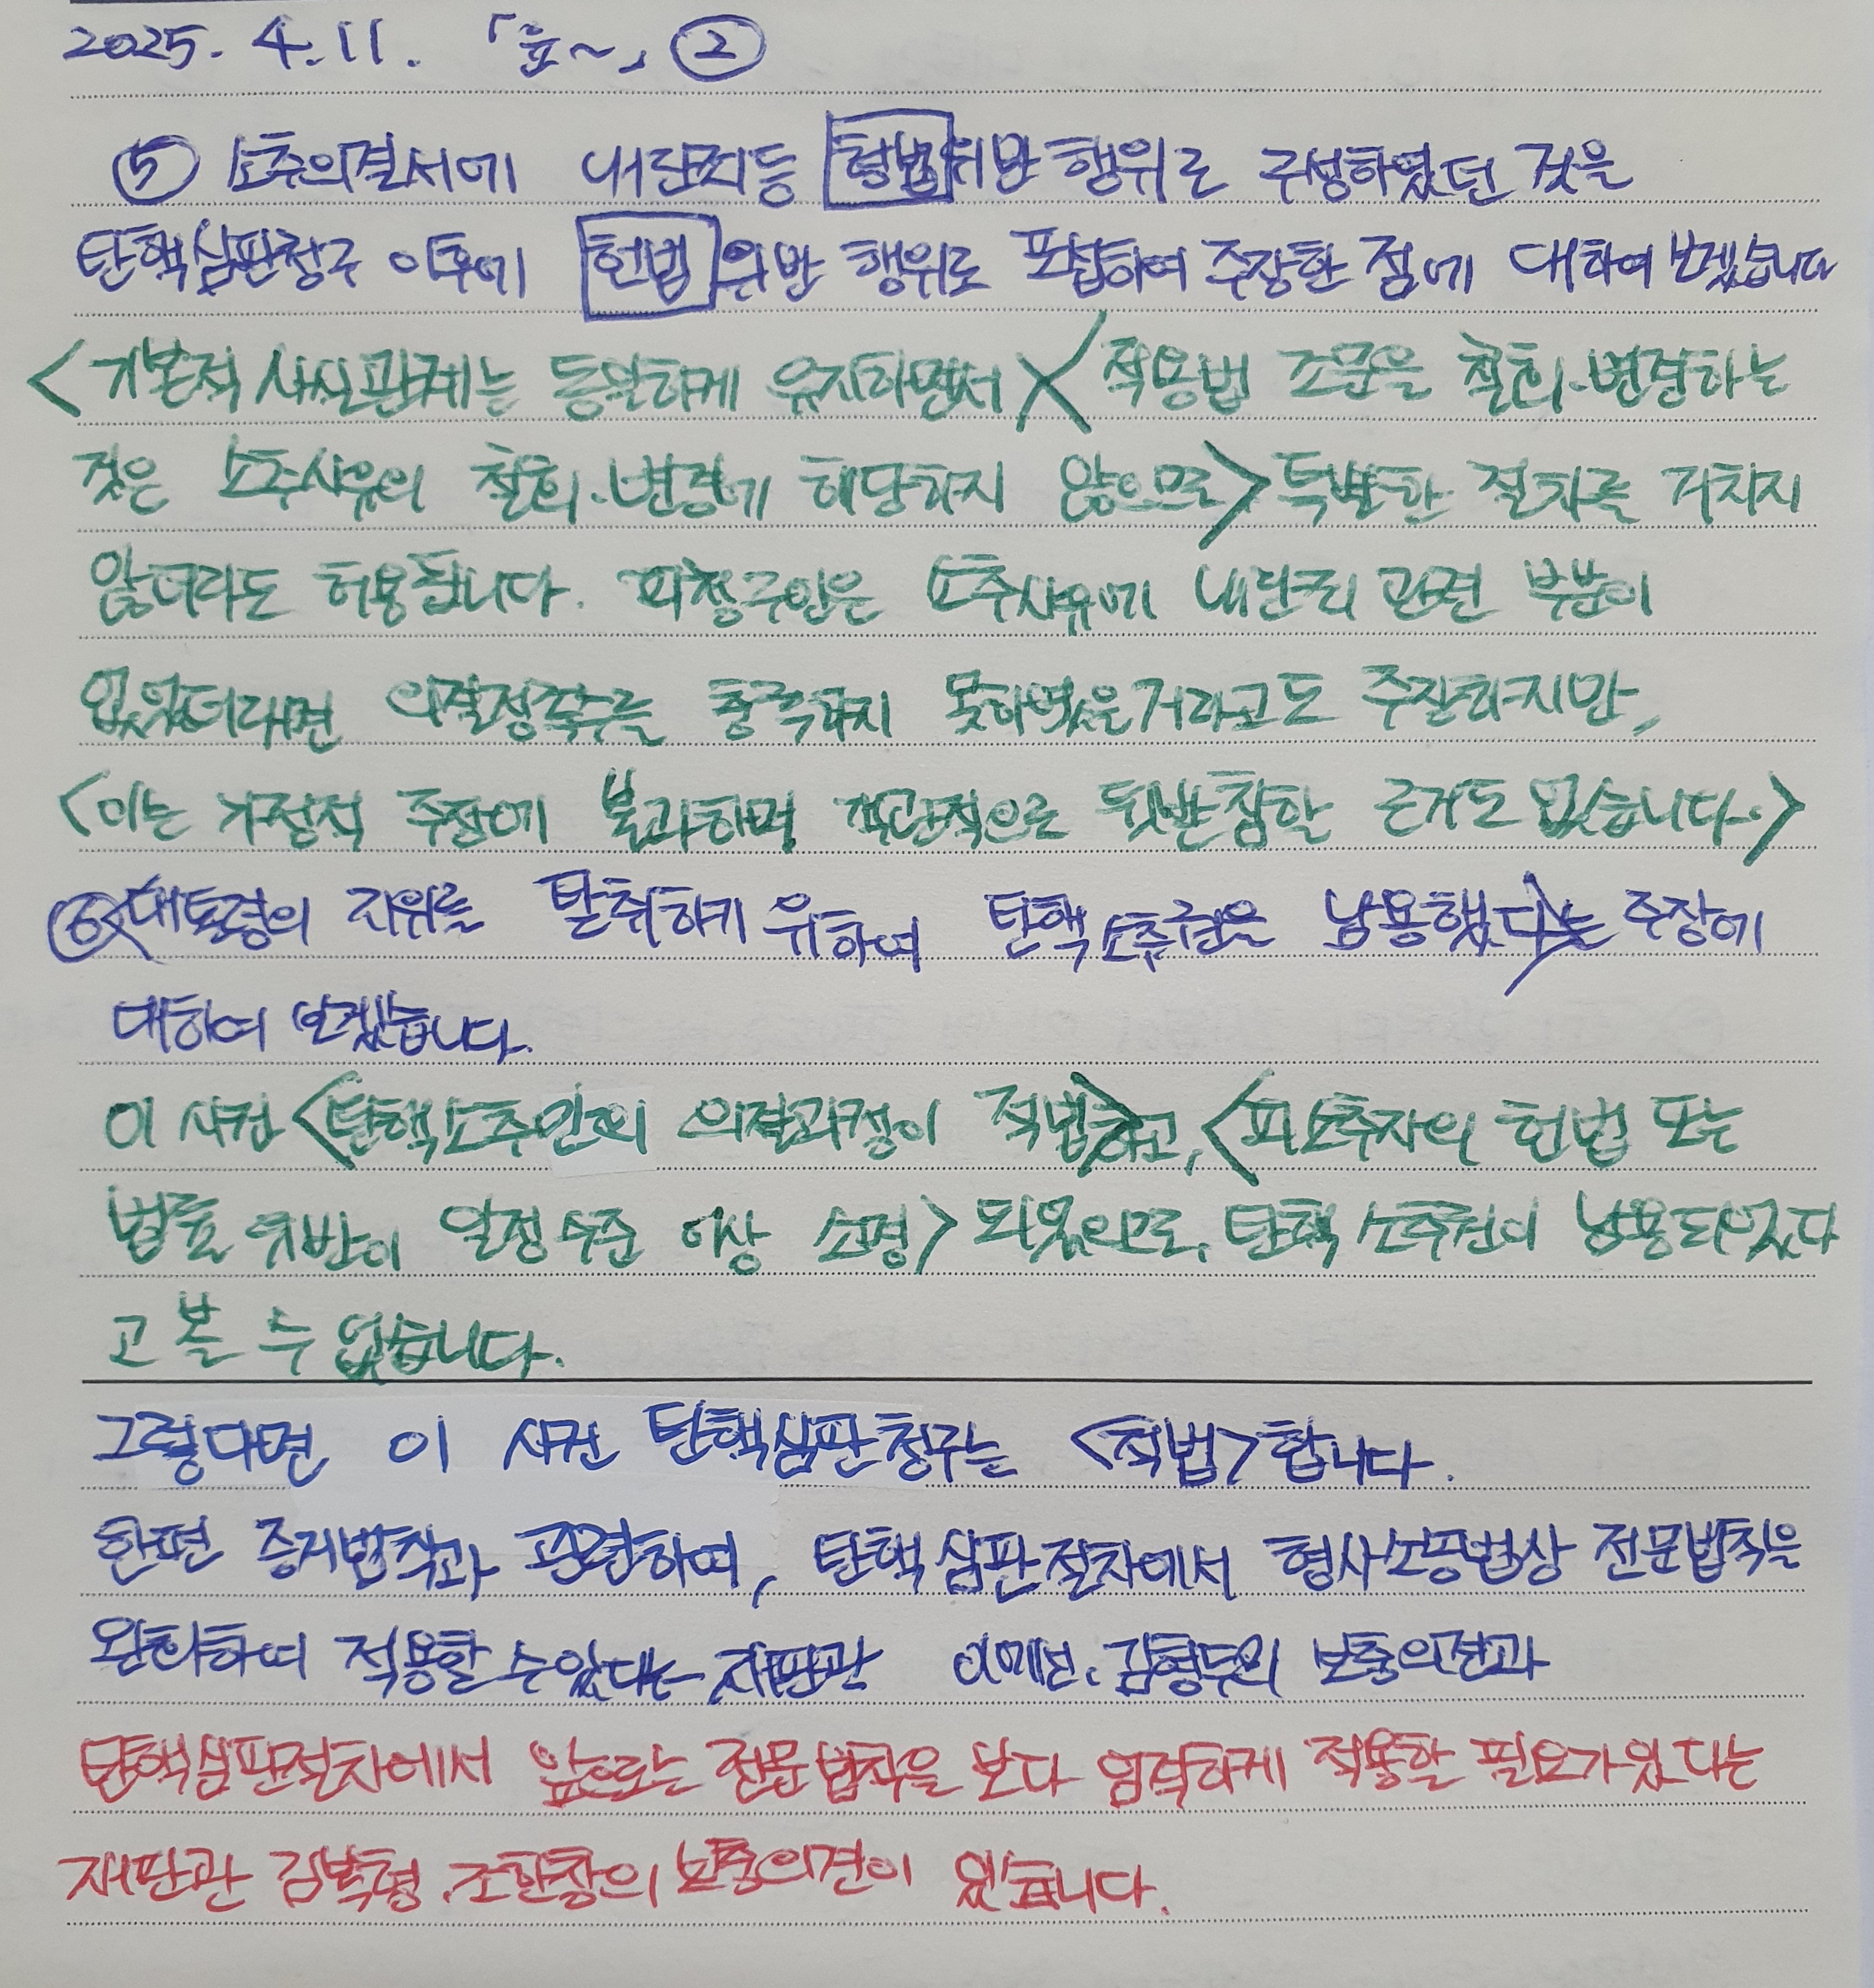 2025. 4. 11. 「윤~」 ②
⑤ 소추의결서에 내란죄등 형법위반 행위로 구성하였던 것을
탄핵심판청구 이후에 헌법위반 행위로 포섭하여 주장한 점에 대하여 보겠습니다
<기본적 사실관계는 동일하게 유지하면서><적용법 조문을 철회·변경하는
것은 소추사유의 철회·변경에 해당하지 않으므로> 특별한 절차를 거치지
않더라도 허용됩니다. 피청구인은 소추사유에 내란죄 관련 부분이
없었더라면 의결정족수를 충족하지 못하였을거라고도 주장하지만,
<이는 가정적 주장에 불과하며 객관적으로 뒷받침할 근거도 없습니다.>
⑥<대통령의 지위를 탈취하기 위하여 탄핵소추권을 남용했다>는 주장에
대하여 보겠습니다.
이 사건 <탄핵소추안의 의결과정이 적법>하고, <피소추자의 헌법 또는
법률 위반이 일정수준 이상 소명> 되었으므로, 탄핵소추권이 남용되었다
고 볼 수 없습니다.
그렇다면 이 사건 탄핵심판청구는 <적법>합니다.
한편 증거법칙과 관련하여, 탄핵심판절차에서 형사소송법상 전문법칙을
완화하여 적용할 수 있다는 재판관 이미선, 김형두의 보충의견과
탄핵심판절차에서 앞으로는 전문법칙을 보다 엄격하게 적용할 필요가 있다는
재판관 김복형, 조한창의 보충의견이 있습니다.